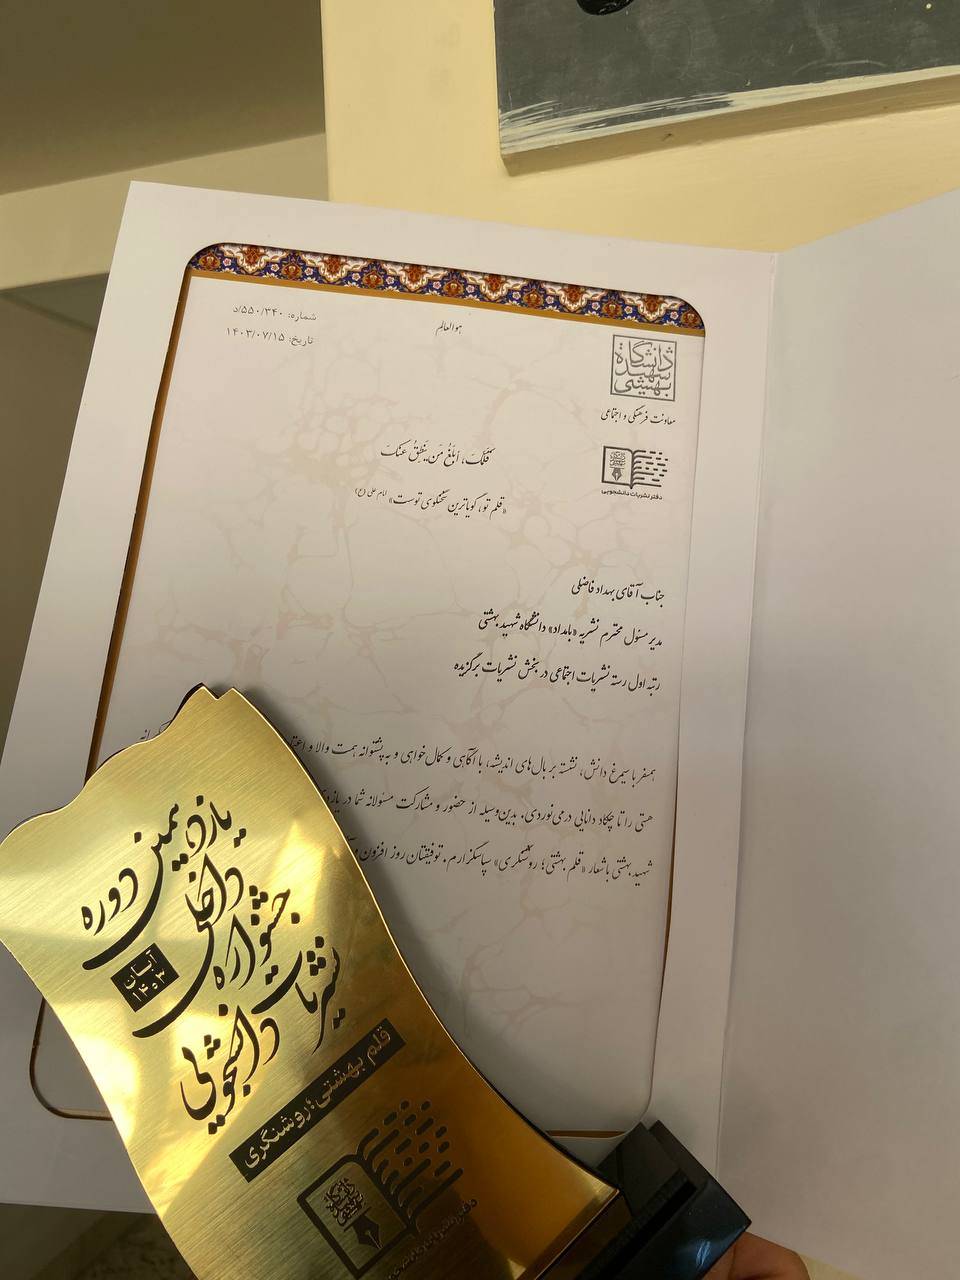 هوالعالم
شماره: ۵۵۰/۳۴۰/د
تاریخ: ۱۴۰۳/۰۷/۱۵
دانشگاه شهید بهشتی
معاونت فرهنگی و اجتماعی
دفتر نشریات دانشجویی
قَلَمُکَ، أبلَغُ مَن یَنطِقُ عَنکَ
«قلم تو، گویاترین سخنگوی توست» امام علی (ع)
جناب آقای بهداد فاضلی
مدیر مسئول محترم نشریه «بامداد» دانشگاه شهید بهشتی
رتبه اول رسته نشریات اجتماعی در بخش نشریات برگزیده
همسفر با سیمرغ دانش، نشسته بر بال‌های اندیشه، با آگاهی و کمال‌خواهی و به پشتوانه همت والا و
هستی را تا چکاد دانایی درمی‌نوردی. بدین‌وسیله از حضور و مشارکت مسئولانه شما در
شهید بهشتی با شعار «قلم بهشتی؛ روشنگری» سپاسگزارم. توفیقتان روز افزون
یازدهمین دوره
جشنواره داخلی
نشریات دانشجویی
آبان
۱۴۰۳
قلم بهشتی؛ روشنگری
دانشگاه شهید بهشتی
دفتر نشریات دانشجویی